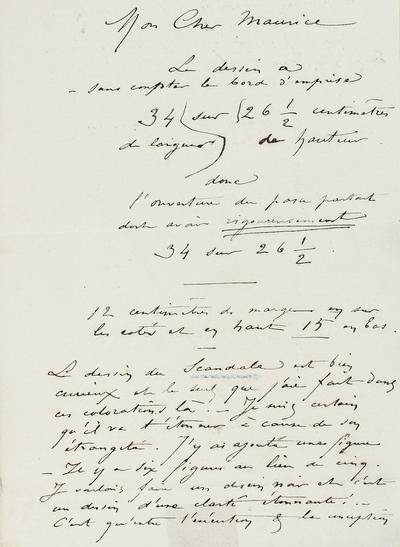 Mon Cher Maurice
Le dessin a
– sans compter le bord d'emprise
34 sur 26 1/2 centimètres
de largeur de hauteur
donc
l'ouverture du passe partout
doit avoir rigoureusement
34 sur 26 1/2.
12 centimètres de marge en sur
les cotés et en haut 15 en bas.
Le dessin du Scandale est bien
curieux et le seul que j'aie fait dans
ces colorations là. – Je suis certain
qu'il va t'étonner à cause de son
étrangeté. J'y ai ajouté une figure
– Il y a six figures au lieu de cinq.
Je voulais faire un dessin noir et c'est
un dessin d'une clarté étonnante! –
C'est qu'entre l'exécution & la conception